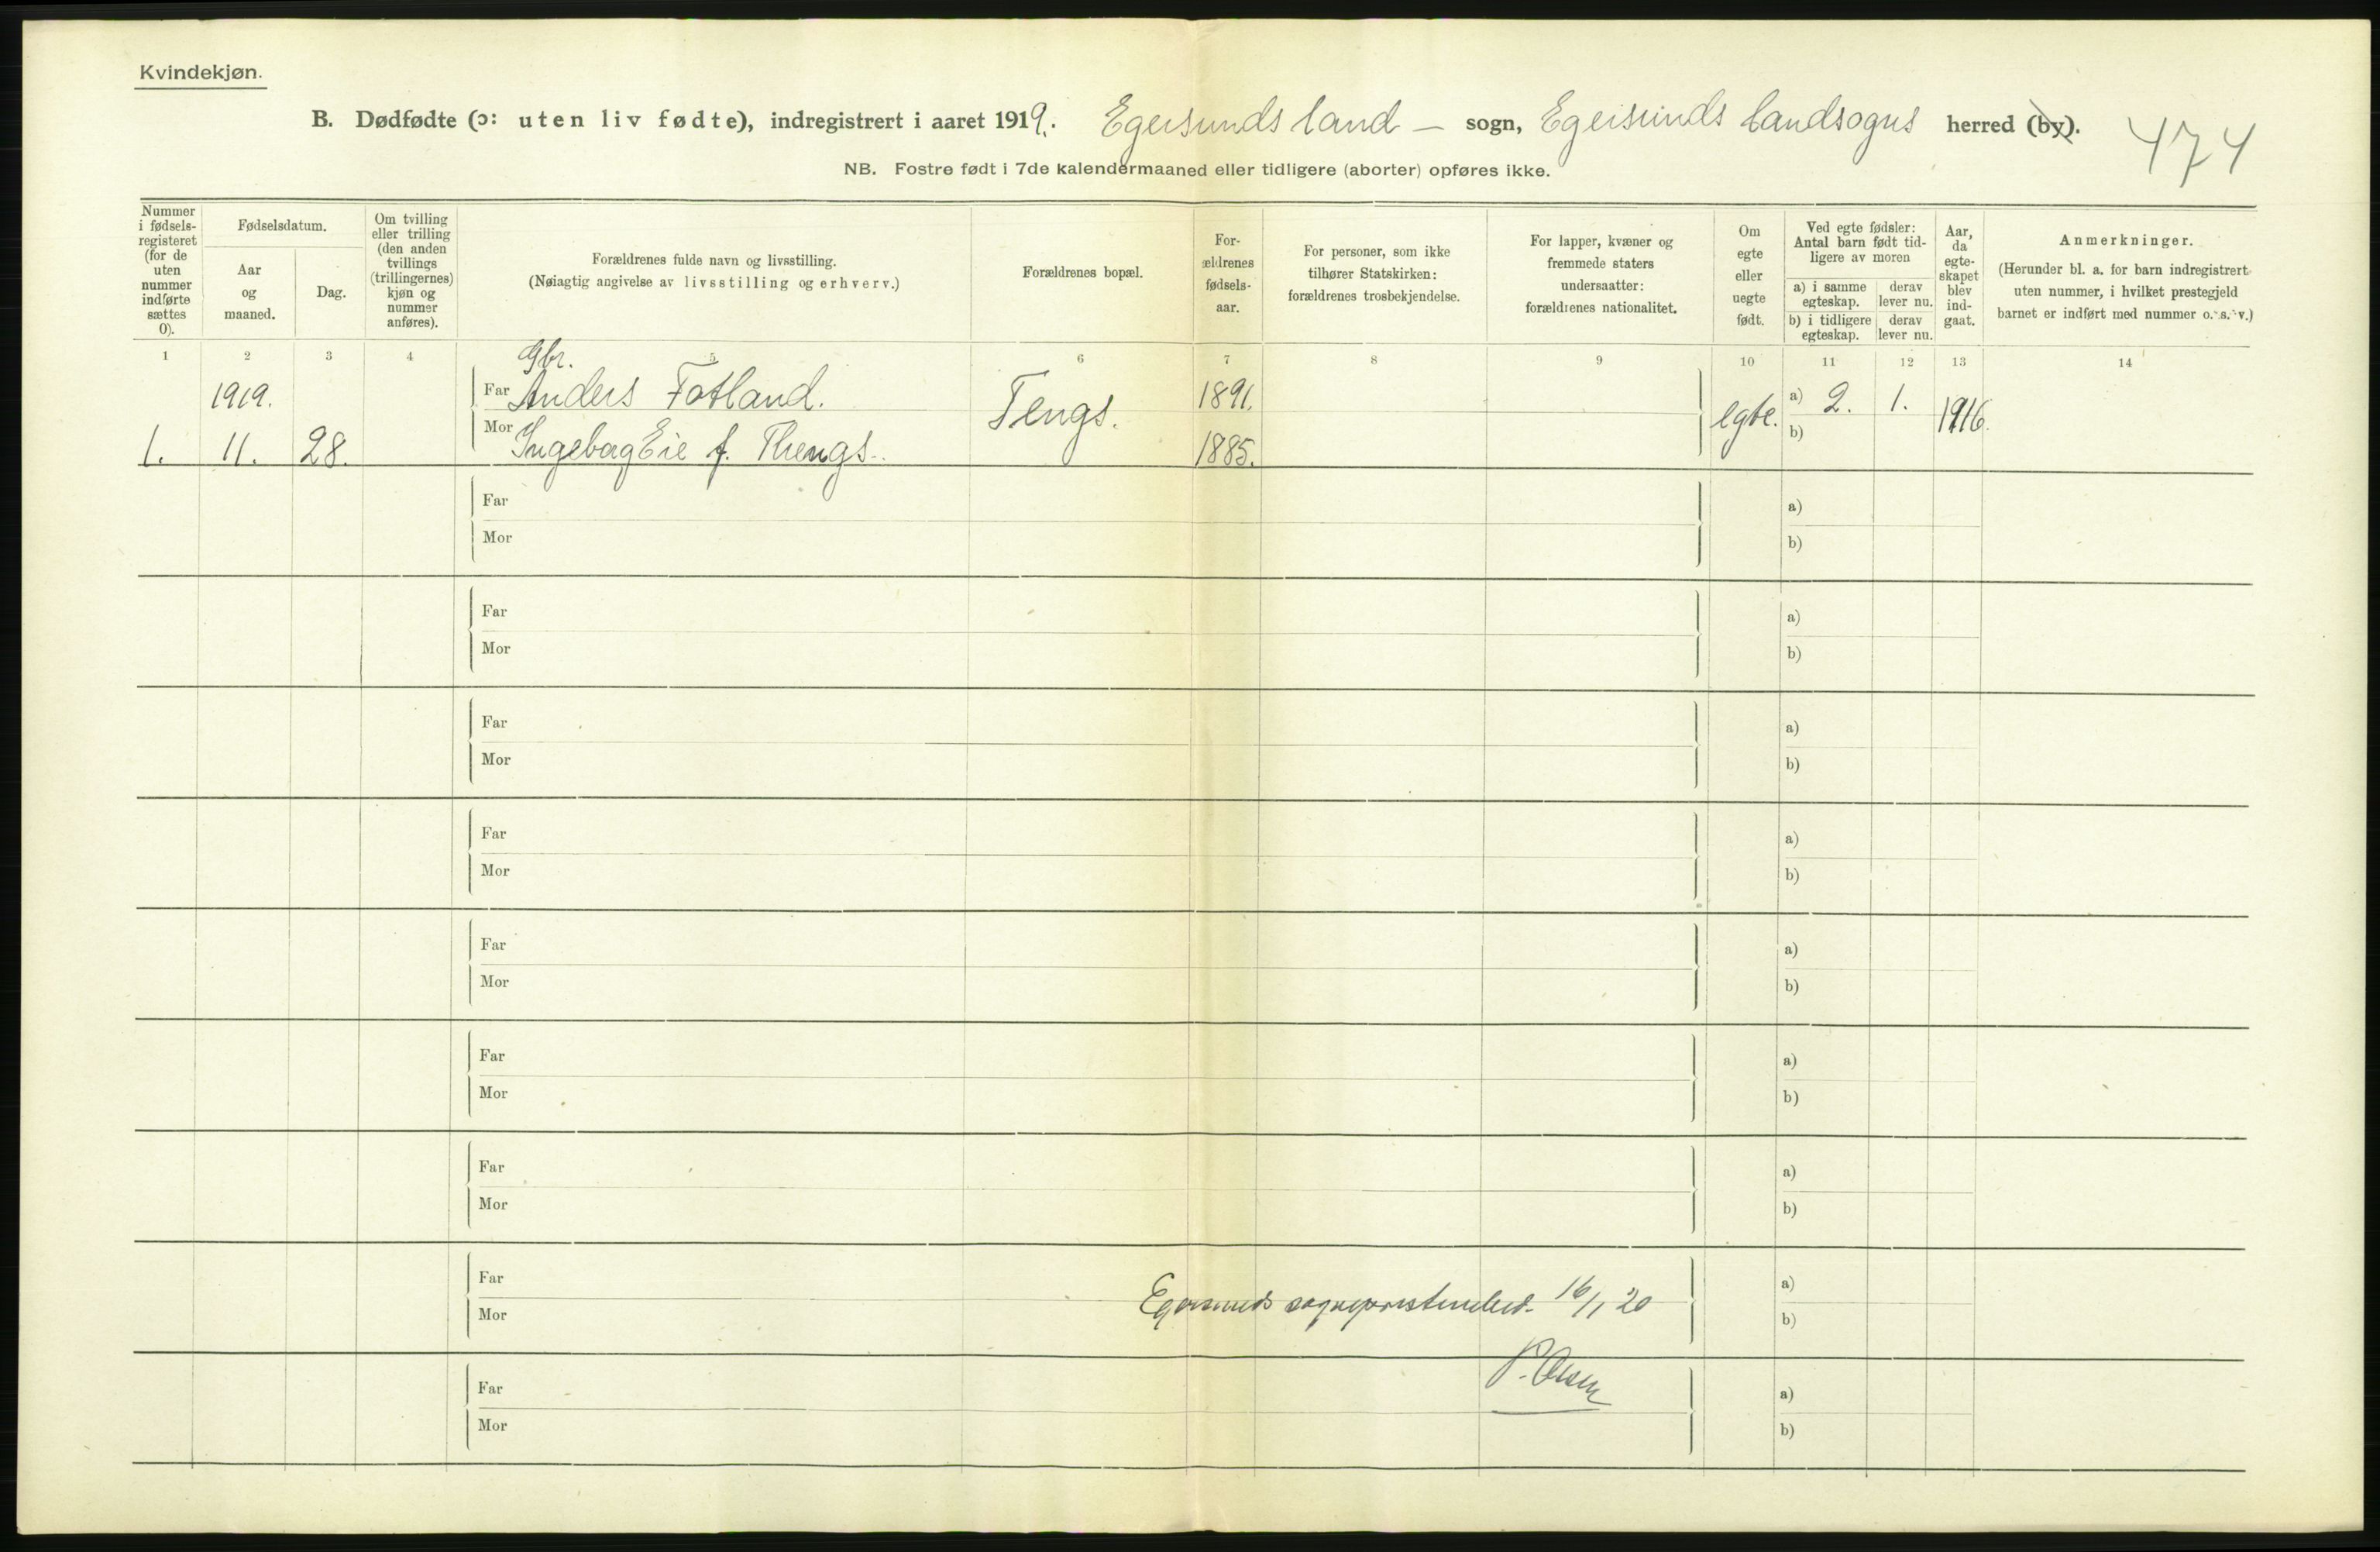 Kvindekjøn.
B. Dødfødte (ɔ: uten liv fødte), indregistrert i aaret 1919. Egersunds land – sogn, Egersunds landsogns herred (by).
474
NB. Fostre født i 7de kalendermaaned eller tidligere (aborter) opføres ikke.
Nummer
i fødsels-
registeret
(for de
uten
nummer
indførte
sættes
0).
Fødselsdatum.
Aar
og
maaned.
Dag.
Om tvilling
eller trilling
(den anden
tvillings
(trillingernes)
kjøn og
nummer
anføres).
Forældrenes fulde navn og livsstilling.
(Nøiagtig angivelse av livsstilling og erhverv.)
Forældrenes bopæl.
For-
ældrenes
fødsels-
aar.
For personer, som ikke
tilhører Statskirken:
forældrenes trosbekjendelse.
For lapper, kvæner og
fremmede staters
undersaatter:
forældrenes nationalitet.
Om
egte
eller
uegte
født.
Ved egte fødsler:
Antal barn født tid-
ligere av moren
a) i samme
egteskap.
derav
lever nu.
b) i tidligere
egteskap.
derav
lever nu.
Aar,
da
egte-
skapet
blev
ind-
gaat.
Anmerkninger.
(Herunder bl. a. for barn indregistrert
uten nummer, i hvilket prestegjeld
barnet er indført med nummer o. s. v.)
1 2 3 4 5 6 7 8 9 10 11 12 13 14
Gbr.
1919. Far Anders Fotland. Tengs. 1891. egte. a) 2. 1. 1916.
1. 11. 28. Mor Ingeborg Eie f. Thengs. 1885. b)
Far a)
Mor b)
Far a)
Mor b)
Far a)
Mor b)
Far a)
Mor b)
Far a)
Mor b)
Far a)
Mor b)
Far a)
Mor b)
Far a)
Egersunds sogneprestembed 16/1 20
Mor b)
P. Olsen
Far a)
Mor b)